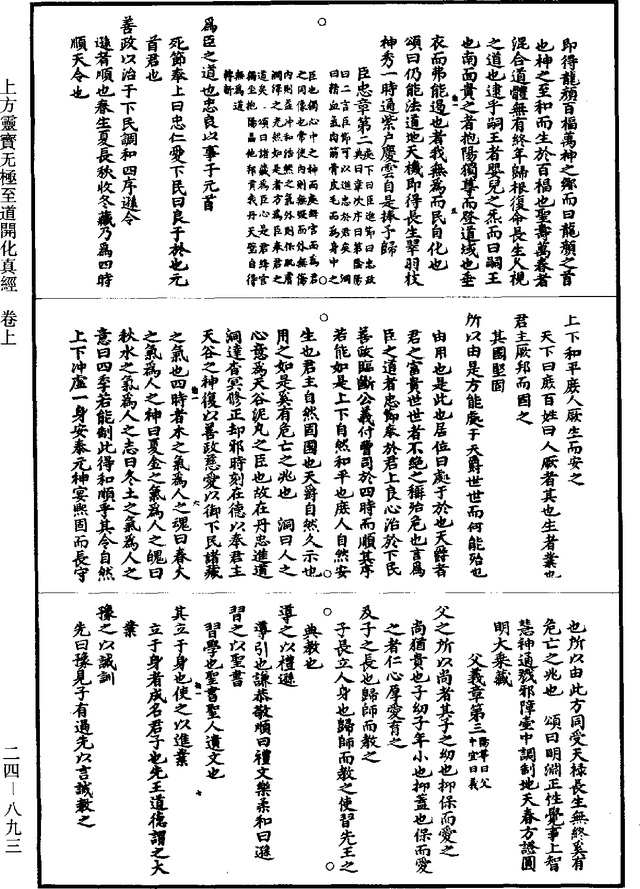 即得龍顏百福萬神之鄉而曰龍顏之首
也神之至和而生於百福也聖壽萬春者
混合道體無有終年歸根復命長生久視
之道也逮乎嗣王者嬰兒之炁而曰嗣王
也南面貴之者抱陽獨尊而登道域也垂
衣而弗能遏也者我無為而民自化也
頌曰仍能法道地天機即得長生翠羽枝
神秀一時通紫戶慶雲自是捧予歸
臣忠章第二
為臣之道也忠良以事于元首
死節奉上曰忠仁愛下民曰良于於也元
首君也
善政以治于下民調和四序遜令
遜者順也春生夏長秋收冬藏乃為四時
順天令也
上下和平庶人厥生而安之
天下曰庶百姓曰人厥者其也生者業也
君主厥邦而固之
其國堅固
所以由是方能處于天爵世世而何能殆也
由用也是此也居位曰處于於也天爵者
君之富貴世世者不絕之稱殆危也言為
臣之道者忠節奉於君上良心治於下民
善政臨斷公義付曹司於四時而順其序
若能如是上下自然和平也庶人自然安
生也君主自然固國也天爵自然久永也
用之如是奚有危亡之兆也 洞曰人之
心意為天谷泥丸之臣也故在丹忠進道
洞達杳冥修正却邪時刻在德以奉君主
天谷之神復以善政慈愛以御下民諸藏
之氣也四時者木之氣為人之魂曰春火
之氣為人之神曰夏金之氣為人之魄曰
秋水之氣為人之志曰冬土之氣為人之
意曰四季若能制此得和順乎其令自然
上下冲虛一身安泰元神宴熙固而長守
也所以由此方同受天祿長生無終奚有
危亡之兆也 頌曰明淵正性覺事上智
慧神通戮邪障壺中調制地天春方證圓
明大乘藏
父義章第三
父之所以尚者其子之幼也抑保而愛之
尚猶貴也子幼子年小也抑蓋也保而愛
之者仁心厚愛育之
及子之長也歸師而教之
子長立人身也歸師而教之使習先王之
典教也
導之以禮遜
導引也謙恭敬順曰禮文樂柔和曰遜
習之以聖書
習學也聖書聖人遺文也
其立于身也使之以進業
立于身者成名君子也先王道德謂之大
業
豫之以誠訓
先曰豫見子有過先以言誠教之
上方靈寶无極至道開化真經 卷上
二四—八九三